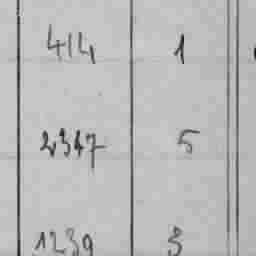 414 1
2347 5
1239 3